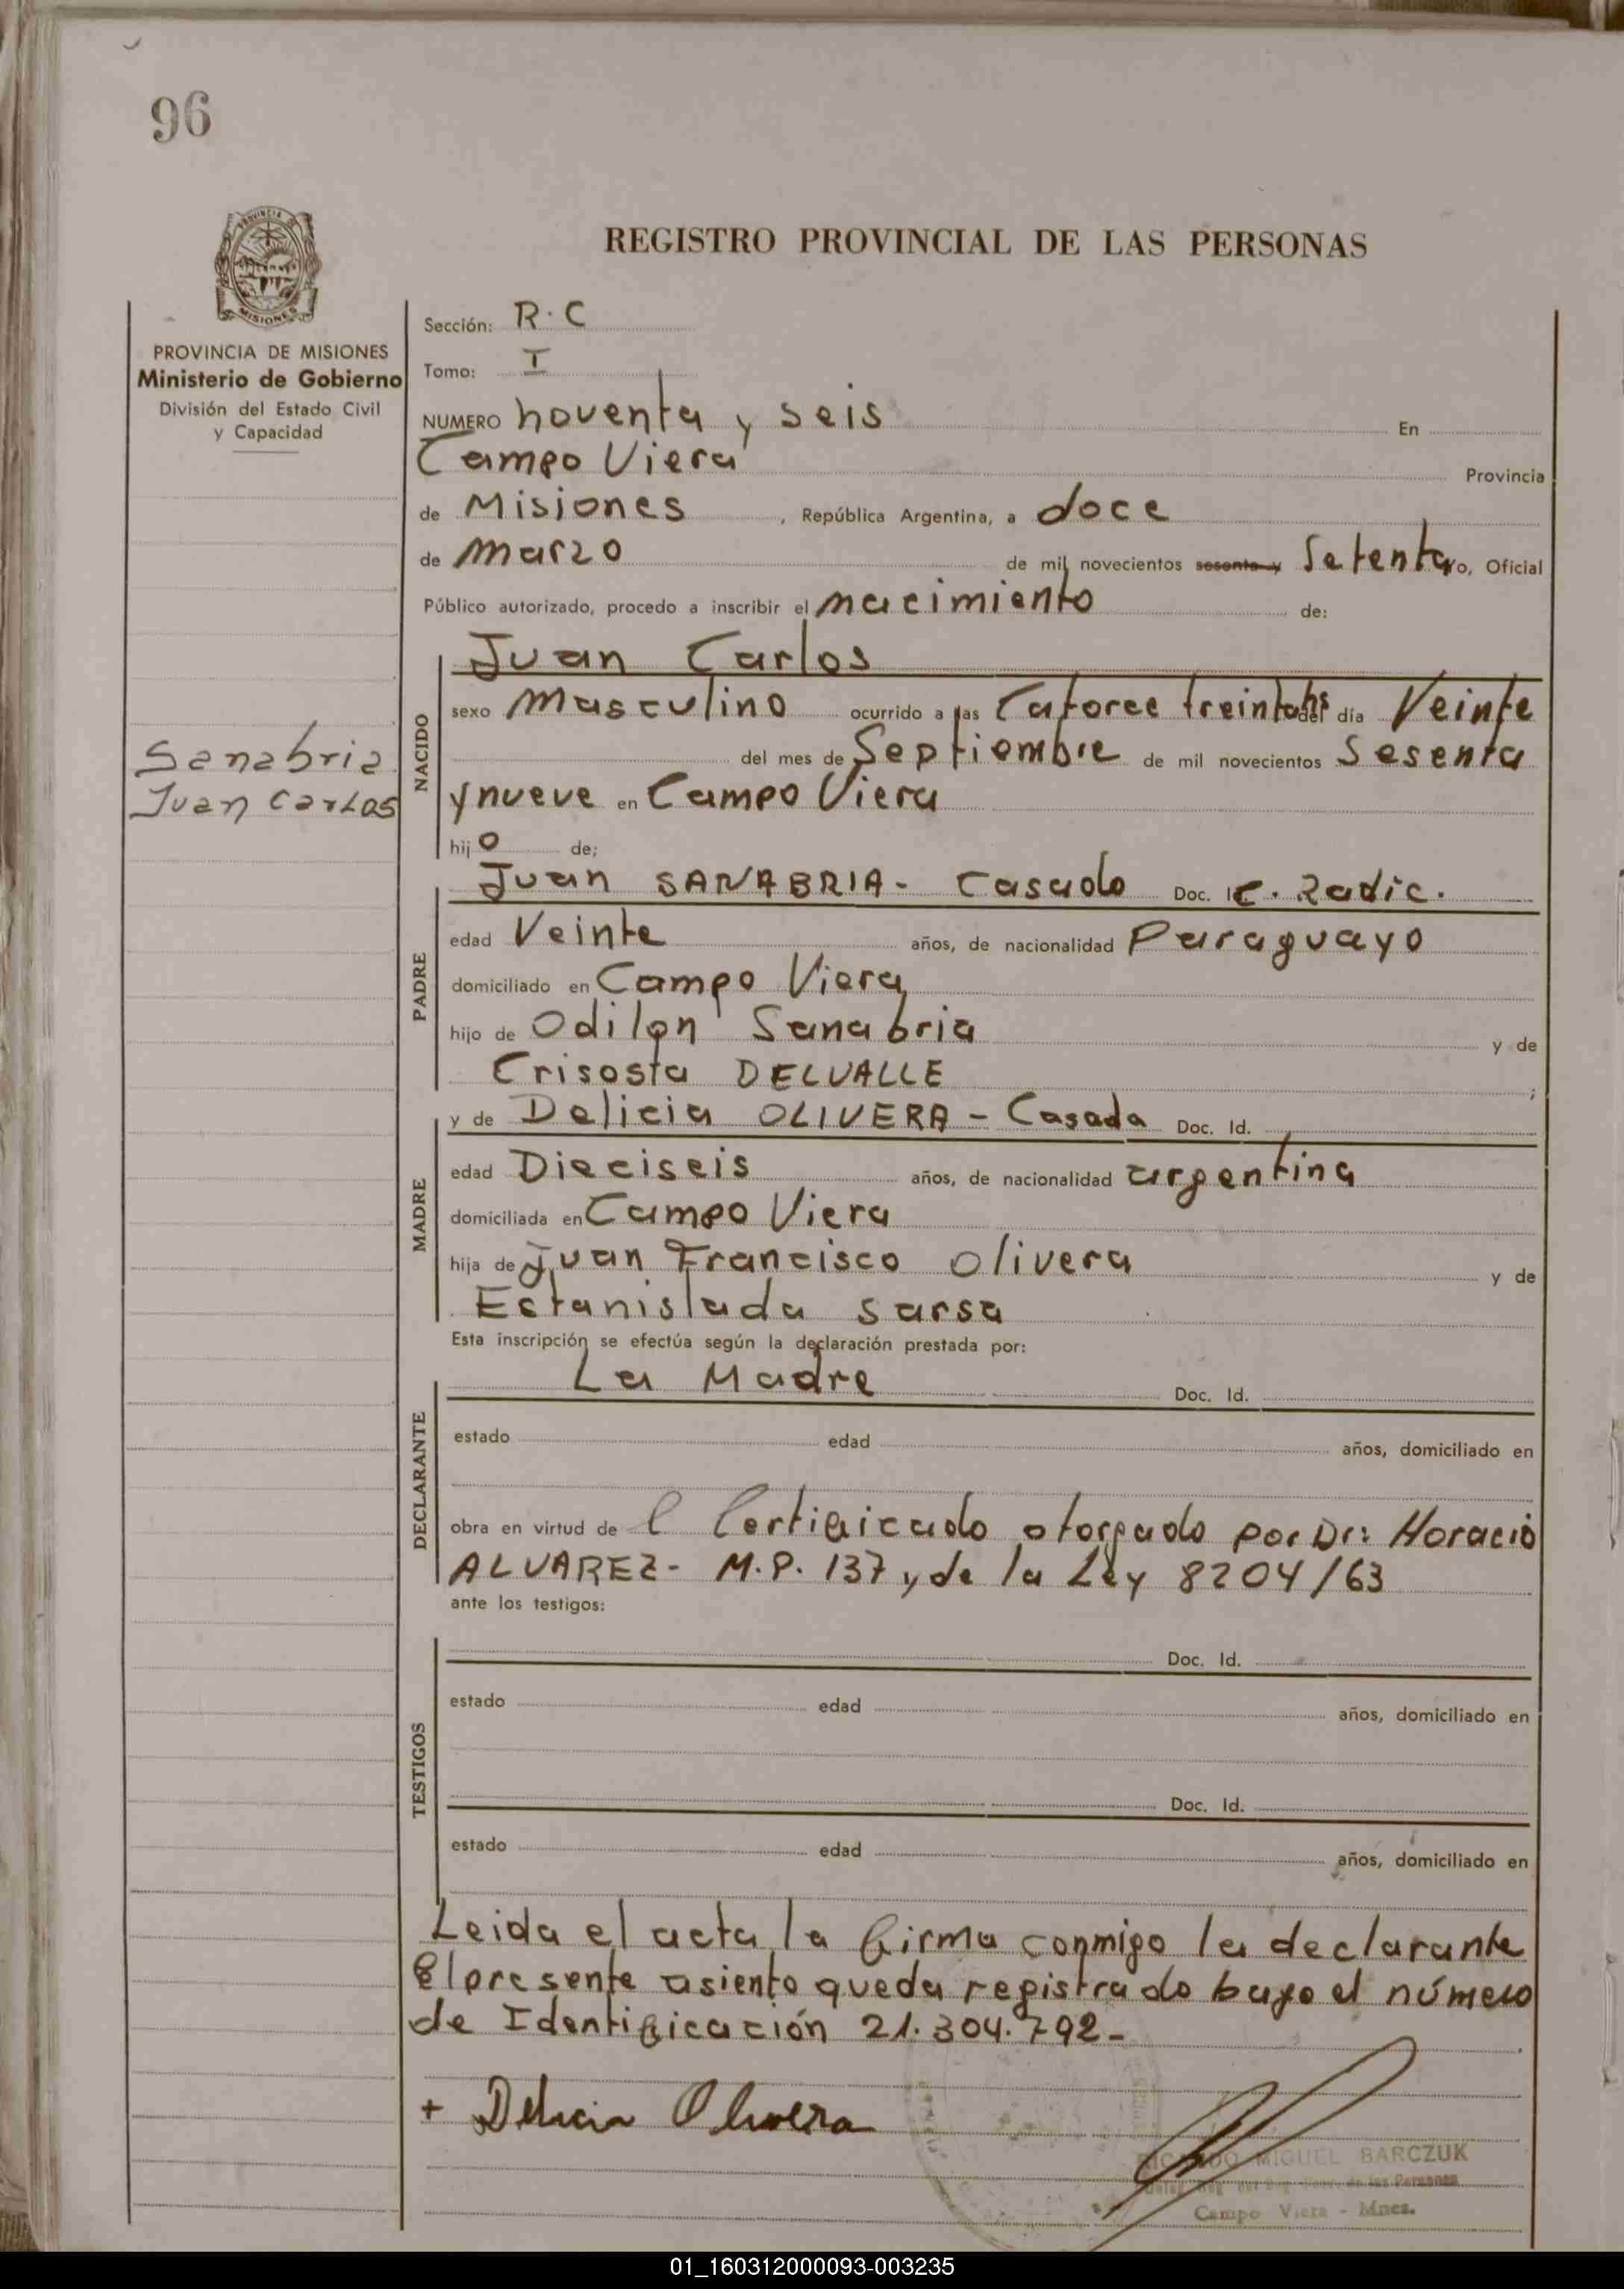 96
PROVINCIA DE MISIONES
Ministerio de Gobierno
División del Estado Civil
y Capacidad
Sanabria
Juan Carlos
REGISTRO PROVINCIAL DE LAS PERSONAS
Sección: R.C
Tomo: I
NUMERO noventa y seis En
Campo Viera Provincia
de Misiones, República Argentina, a doce
de marzo de mil novecientos sesenta y Setenta yo, Oficial
Público autorizado, procedo a inscribir el nacimiento de:
Juan Carlos
NACIDO
sexo masculino ocurrido a las Catorce treinta hs del día Veinte
del mes de Septiembre de mil novecientos Sesenta
y nueve en Campo Viera
hijo de;
PADRE
Juan SANABRIA- Casado Doc. I C. Radic.
edad Veinte años, de nacionalidad Paraguayo
domiciliado en Campo Viera
hijo de Odilon Sanabria y de
Crisosta DELVALLE ;
MADRE
y de Delicia OLIVERA - Casada Doc. Id.
edad Dieciseis años, de nacionalidad argentina
domiciliada en Campo Viera
hija de Juan Francisco Olivera y de
Estanislada Sarsa
Esta inscripción se efectúa según la declaración prestada por:
DECLARANTE
La Madre Doc. Id.
estado edad años, domiciliado en
obra en virtud del Certificado otorgado por Dr: Horacio
ALVAREZ- M.P. 137 y de la Ley 8204/63
ante los testigos:
TESTIGOS
Doc. Id.
estado edad años, domiciliado en
Doc. Id.
estado edad años, domiciliado en
Leida el acta la firma conmigo la declarante
El presente asiento queda registrado bajo el número
de Identificación 21.304.792-
+ Delicia Olivera
RICARDO MIGUEL BARCZUK
de las Personas
Campo Viera - Mnes.
01_160312000093-003235